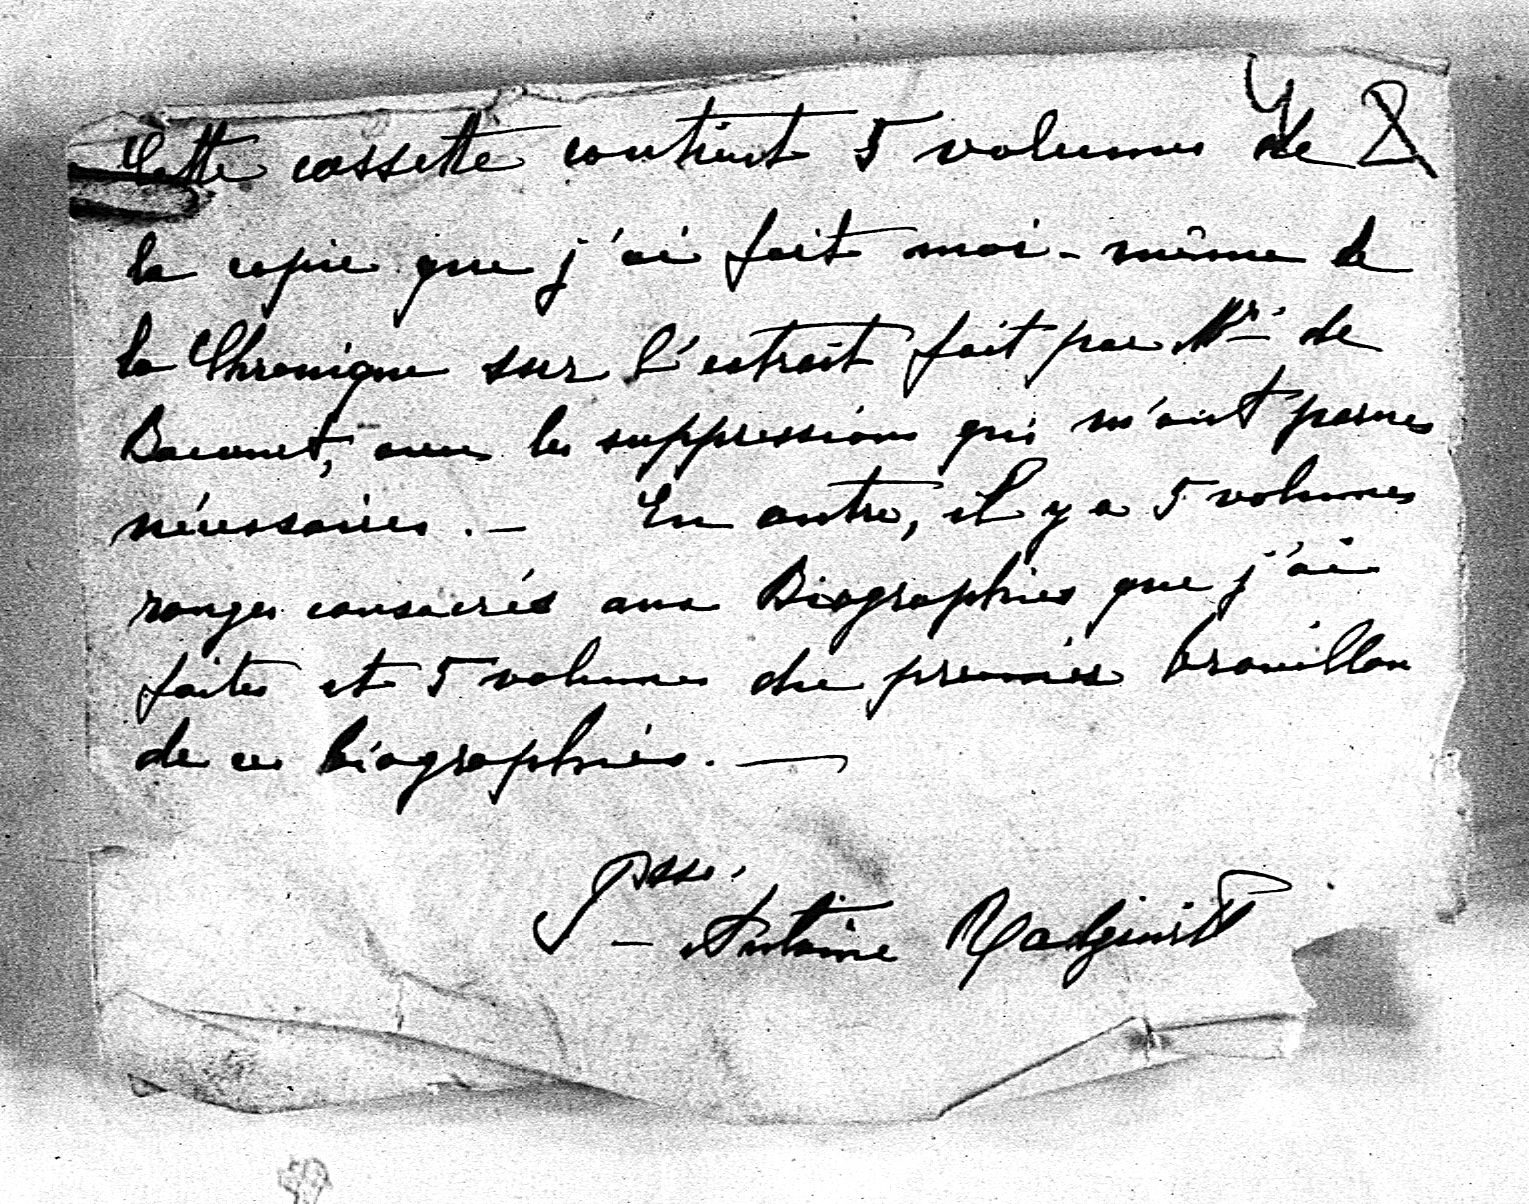 Cette cassette contient 5 volumes de
la copie que j'ai fait moi-même de
la Chronique sur l'extrait fait par Mr. de
Bacourt, avec les suppressions qui m'ont parues
nécessaires. — En outre, il y a 5 volumes
rouges consacrés aux Biographies que j'ai
faites et 5 volumes du premier brouillon
de ces biographies. —
Psse.
— Antoine Radziwill